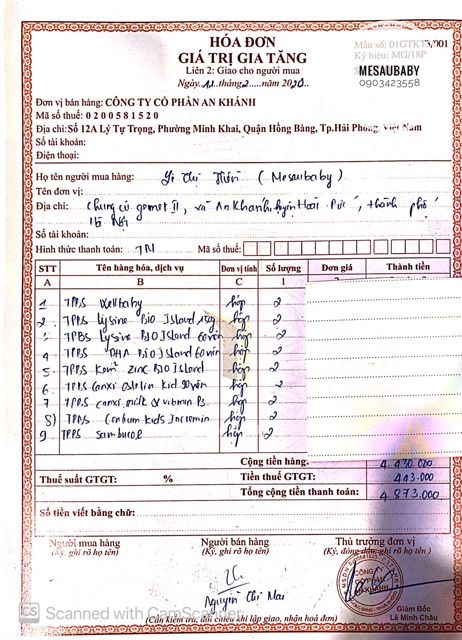 HÓA ĐƠN
GIÁ TRỊ GIA TĂNG
Liên 2: Giao cho người mua
Ngày..11..tháng..2.....năm 2020
Mẫu số: 01GTKT3/001
Ký hiệu: MG/18P
MESAUBABY
0903423558
Đơn vị bán hàng: CÔNG TY CỔ PHẦN AN KHÁNH
Mã số thuế: 0200581520
Địa chỉ: Số 12A Lý Tự Trọng, Phường Minh Khai, Quận Hồng Bàng, Tp.Hải Phòng, Việt Nam
Số tài khoản:
Điện thoại:
Họ tên người mua hàng: Thị (Mesaubaby)
Tên đơn vị:
Địa chỉ: Chung cư gemet II, xã An Khánh, huyện Hoài Đức, thành phố
Hà Nội
Số tài khoản:
Hình thức thanh toán: TM Mã số thuế:
STT Tên hàng hóa, dịch vụ Đơn vị tính Số lượng Đơn giá Thành tiền
A B C 1
1 TPBS Wellbaby hộp 2
2 TPBS Lysine Bio Island 150g hộp 2
3 TPBS Lysine BIO Island 60 viên hộp 2
4 TPBS DHA Bio Island 60 viên hộp 2
5 TPBS Kẽm Zinc BIO Island hộp 2
6 TPBS Canxi Ostelin Kid 90 viên hộp 2
7 TPBS canxi milk & vitamin D3 hộp 2
8) TPBS Centrum Kids Incremin hộp 2
9 TPBS Sambucol hộp 2
Cộng tiền hàng: 4.430.000
Thuế suất GTGT: % Tiền thuế GTGT: 443.000
Tổng cộng tiền thanh toán: 4 873.000
Số tiền viết bằng chữ:
Người mua hàng Người bán hàng Thủ trưởng đơn vị
(Ký, ghi rõ họ tên) (Ký, ghi rõ họ tên) (Ký, đóng dấu, ghi rõ họ tên)
CÔNG TY
CỔ PHẦN
AN KHÁNH
Nguyễn Chi Mai
Giám Đốc
Lê Minh Châu
(Cần kiểm tra, đối chiếu khi lập giao, nhận hoá đơn)
CS Scanned with CamScanner